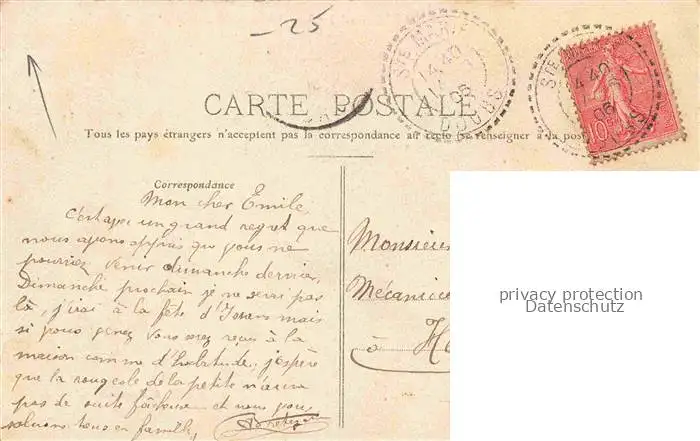 -25
STE MARIE
14 40
06
DOUBS
STE
4 40
06
10
CARTE POSTALE
Tous les pays étrangers n'acceptent pas la correspondance au recto (se renseigner à la poste
Correspondance
Mon cher Emile,
C'est avec un grand regret que
nous avons appris que vous ne
pouviez venir dimanche dernier,
Dimanche prochain je ne serai pas
là, j'irai à la fête d' mais
si vous venez vous serez reçus à la
maison comme d'habitude, j'espère
que la rougeole de la petite n'aura
pas de suite fâcheuse et nous vous
saluons tous en famille,
Monsieur
Mécanicien
à He
privacy protection
Datenschutz